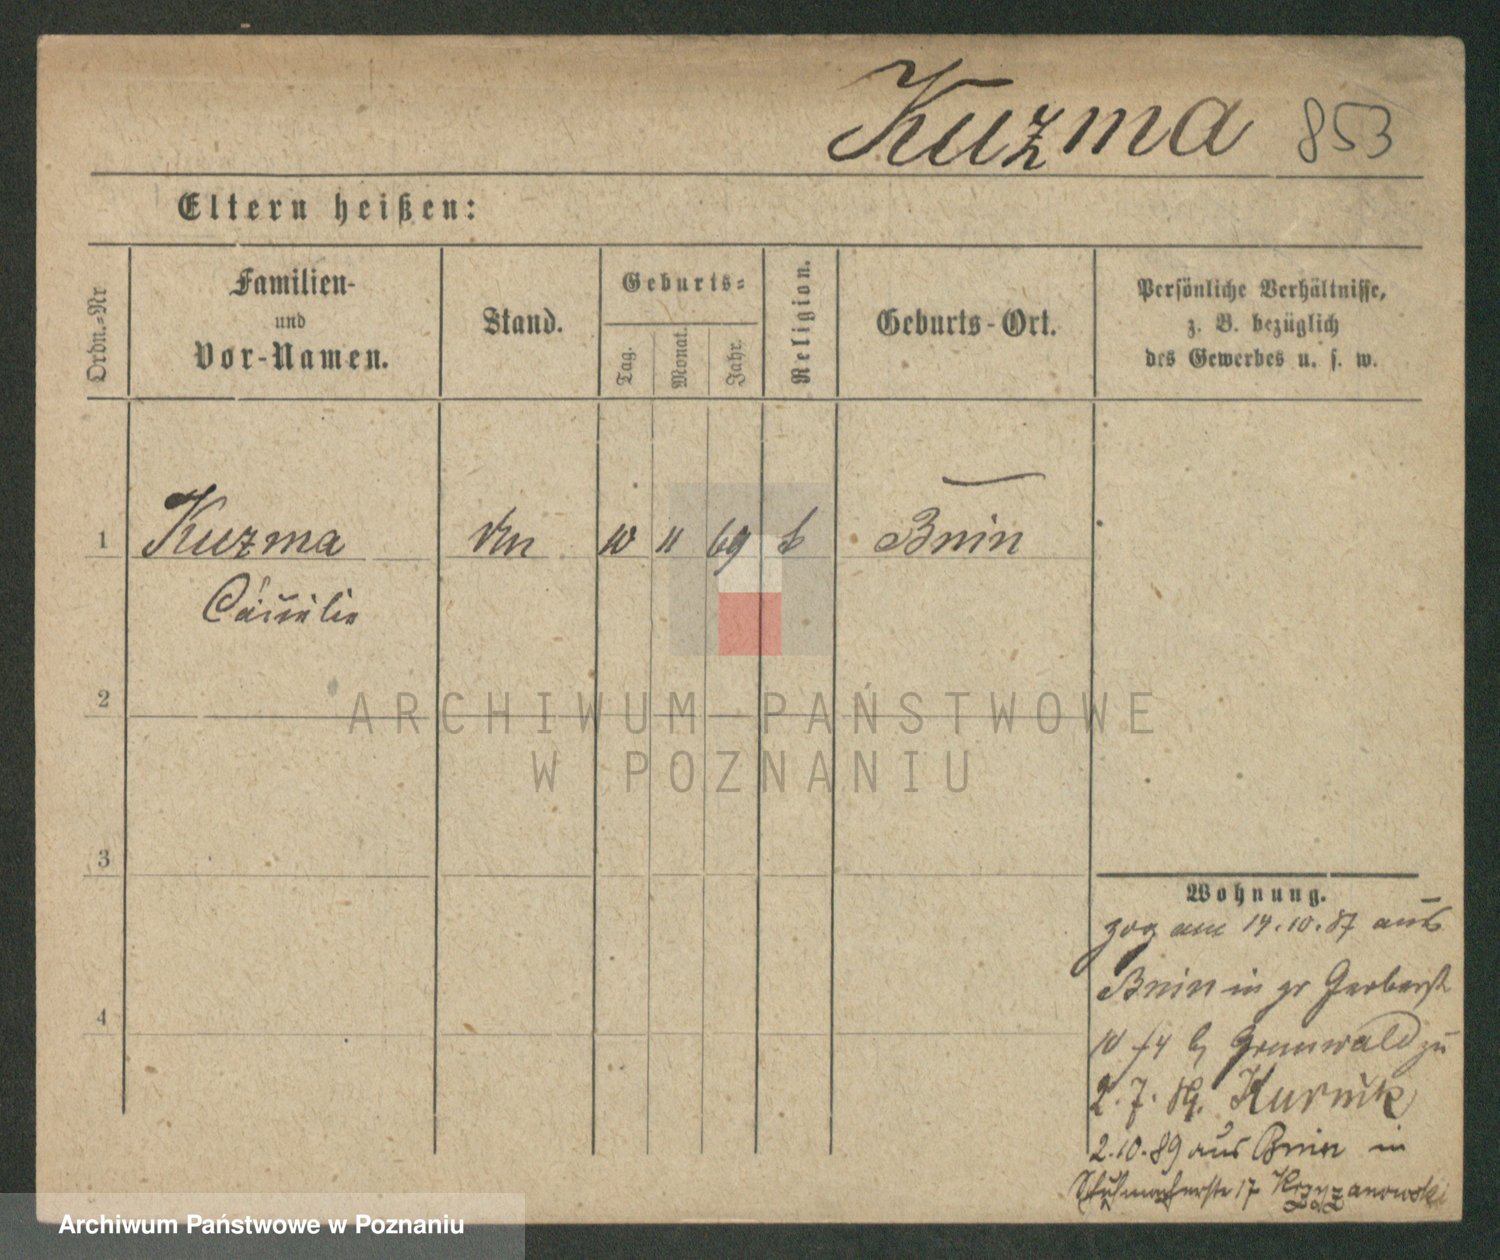 Kuzma 853
Eltern heißen:
Ordn.-Nr
Familien-
und
Vor-Namen.
Stand.
Geburts-
Tag.
Monat.
Jahr.
Religion.
Geburts-Ort.
Persönliche Verhältnisse,
z. B. bezüglich
des Gewerbes u. s. w.
1 Kuzma 10 11 69 k Bnin
2
3
4
Wohnung.
zog am 14.10.87 aus
Bnin in gr Gerberst
10 b Grunwald zu
2.7. Kurnik
2.10.89 aus Bnin in
Schuhmacherstr 17 Krzyzanowski
ARCHIWUM PAŃSTWOWE
W POZNANIU
Archiwum Państwowe w Poznaniu